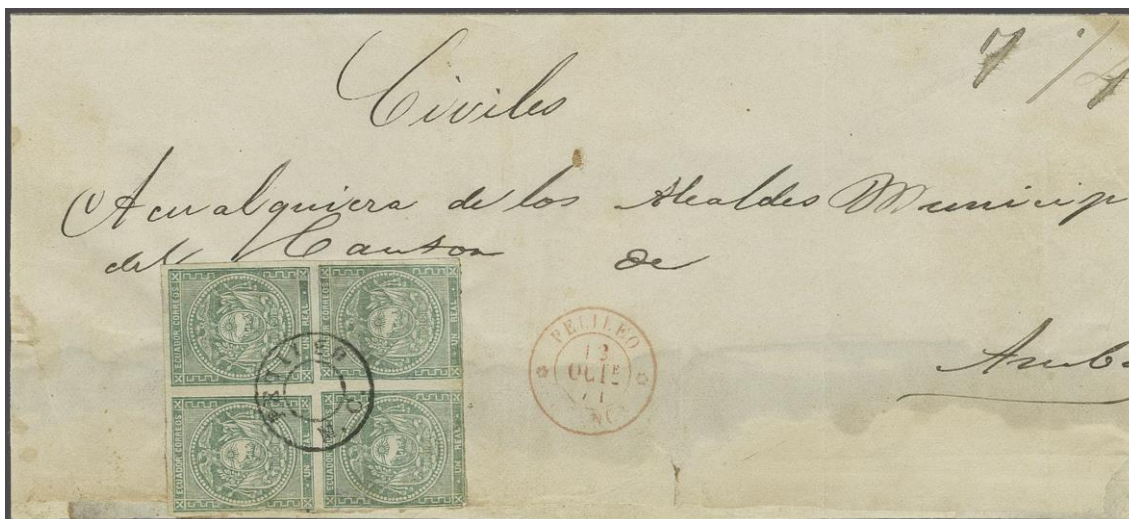 Civiles
A cualquiera de los Alcaldes Municip
del Canton de
Amb
ECUADOR CORREOS UN REAL
ECUADOR CORREOS UN REAL
ECUADOR CORREOS UN REAL
ECUADOR CORREOS UN REAL
PELILEO
13